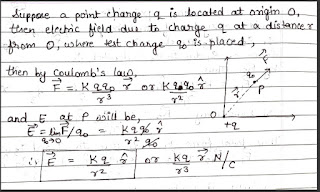 Suppose a point charge q is located at origin O,
then electric field due to charge q at a distance r
from O, where test charge q₀ is placed,
then by Coulomb's law,
F⃗ = K q q₀ r⃗ / r³ or K q q₀ r̂ / r²
and E at P will be,
E⃗ = lim q₀→0 F⃗/q₀ = K q q₀ r̂ / r² q₀
∴ E⃗ = K q r̂ / r² or K q r⃗ / r³ N/C
q₀
P
r⃗
O
+q